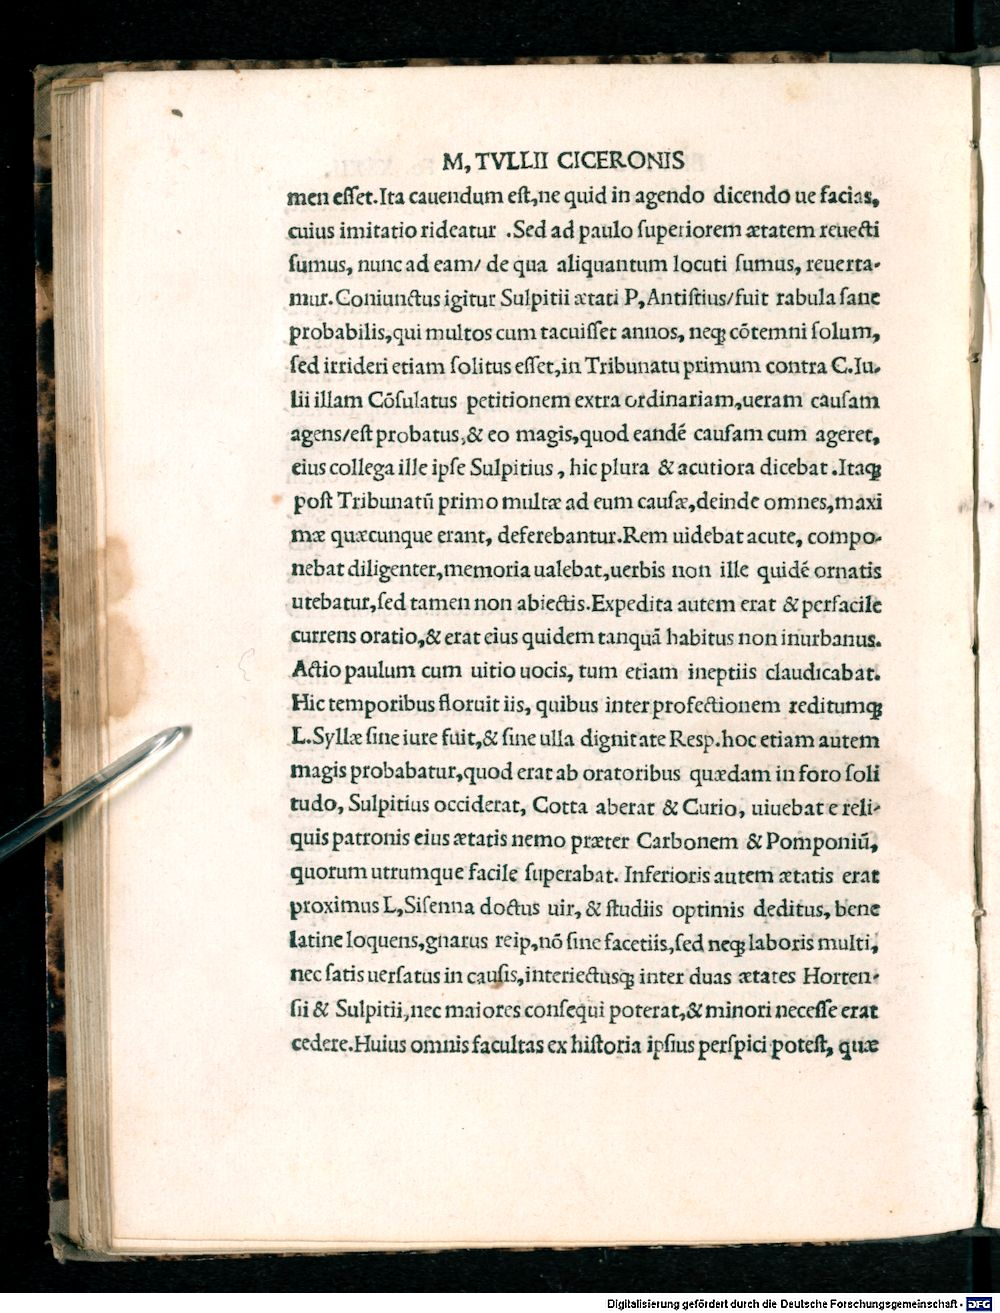 M, TVLLII CICERONIS
men eſſet.Ita cauendum eſt,ne quid in agendo dicendo ue facias,
cuius imitatio rideatur .Sed ad paulo ſuperiorem ætatem reuecti
ſumus, nunc ad eam/ de qua aliquantum locuti ſumus, reuerta-
mur.Coniunctus igitur Sulpitii ætati P,Antiſtius/fuit rabula ſane
probabilis,qui multos cum tacuiſſet annos, neqꝫ cõtemni ſolum,
ſed irrideri etiam ſolitus eſſet,in Tribunatu primum contra C.Iu-
lii illam Cõſulatus petitionem extra ordinariam,ueram cauſam
agens/eſt probatus,& eo magis,quod eandẽ cauſam cum ageret,
eius collega ille ipſe Sulpitius, hic plura & acutiora dicebat.Itaqꝫ
poſt Tribunatũ primo multæ ad eum cauſæ,deinde omnes,maxi
mæ quæcunque erant, deferebantur.Rem uidebat acute, compo-
nebat diligenter,memoria ualebat,uerbis non ille quidẽ ornatis
utebatur,ſed tamen non abiectis.Expedita autem erat & perfacile
currens oratio,& erat eius quidem tanquã habitus non inurbanus.
Actio paulum cum uitio uocis, tum etiam ineptiis claudicabat.
Hic temporibus floruit iis, quibus inter profectionem reditumqꝫ
L.Syllæ ſine iure fuit,& ſine ulla dignitate Resp.hoc etiam autem
magis probabatur,quod erat ab oratoribus quædam in foro ſoli
tudo, Sulpitius occiderat, Cotta aberat & Curio, uiuebat e reli-
quis patronis eius ætatis nemo præter Carbonem & Pomponiũ,
quorum utrumque facile ſuperabat. Inferioris autem ætatis erat
proximus L,Siſenna doctus uir, & ſtudiis optimis deditus, bene
latine loquens,gnarus reip,nõ ſine facetiis,ſed neqꝫ laboris multi,
nec ſatis uerſatus in cauſis,interiectusqꝫ inter duas ætates Horten-
ſii & Sulpitii,nec maiores conſequi poterat,& minori neceſſe erat
cedere.Huius omnis facultas ex hiſtoria ipſius perſpici poteſt, quæ
Digitalisierung gefördert durch die Deutsche Forschungsgemeinschaft - DFG